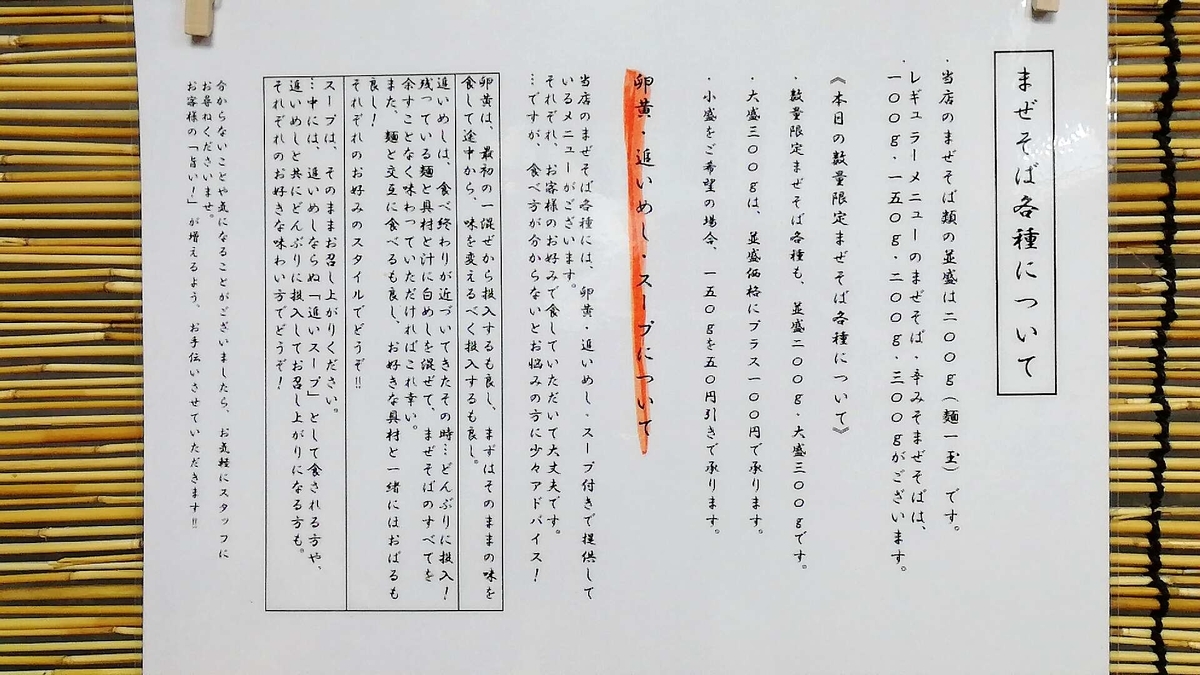 まぜそば各種について
・当店のまぜそば類の並盛は二〇〇g(麺一玉)です。
・レギュラーメニューのまぜそば・辛みそまぜそばは、
一〇〇g・一五〇g・二〇〇g・三〇〇gがございます。
《本日の数量限定まぜそば各種について》
・数量限定まぜそば各種も、並盛二〇〇g・大盛三〇〇gです。
・大盛三〇〇gは、並盛価格にプラス一〇〇円で承ります。
・小盛をご希望の場合、一五〇gを五〇円引きで承ります。
卵黄・追いめし・スープについて
当店のまぜそば各種には、卵黄・追いめし・スープ付きで提供して
いるメニューがございます。
それぞれ、お客様のお好みで食していただいて大丈夫です。
…ですが、食べ方が分からないとお悩みの方に少々アドバイス!
卵黄は、最初の一混ぜから投入するも良し、まずはそのままの味を
食して途中から、味を変えるべく投入するも良し。
追いめしは、食べ終わりが近づいてきたその時…どんぶりに投入!
残っている麺と具材と汁に白めしを混ぜて、まぜそばのすべてを
余すことなく味わっていただければこれ幸い。
また、麺と交互に食べるも良し、お好きな具材と一緒にほおばるも
良し!
それぞれのお好みのスタイルでどうぞ!!
スープは、そのままお召し上がりください。
…中には、追いめしならぬ「追いスープ」として食される方や、
追いめしと共にどんぶりに投入してお召し上がりになる方も。
それぞれのお好きな味わい方でどうぞ!
分からないことや気になることがございましたら、お気軽にスタッフに
お尋ねくださいませ。
お客様の「旨い!」が増えるよう、お手伝いさせていただきます!!